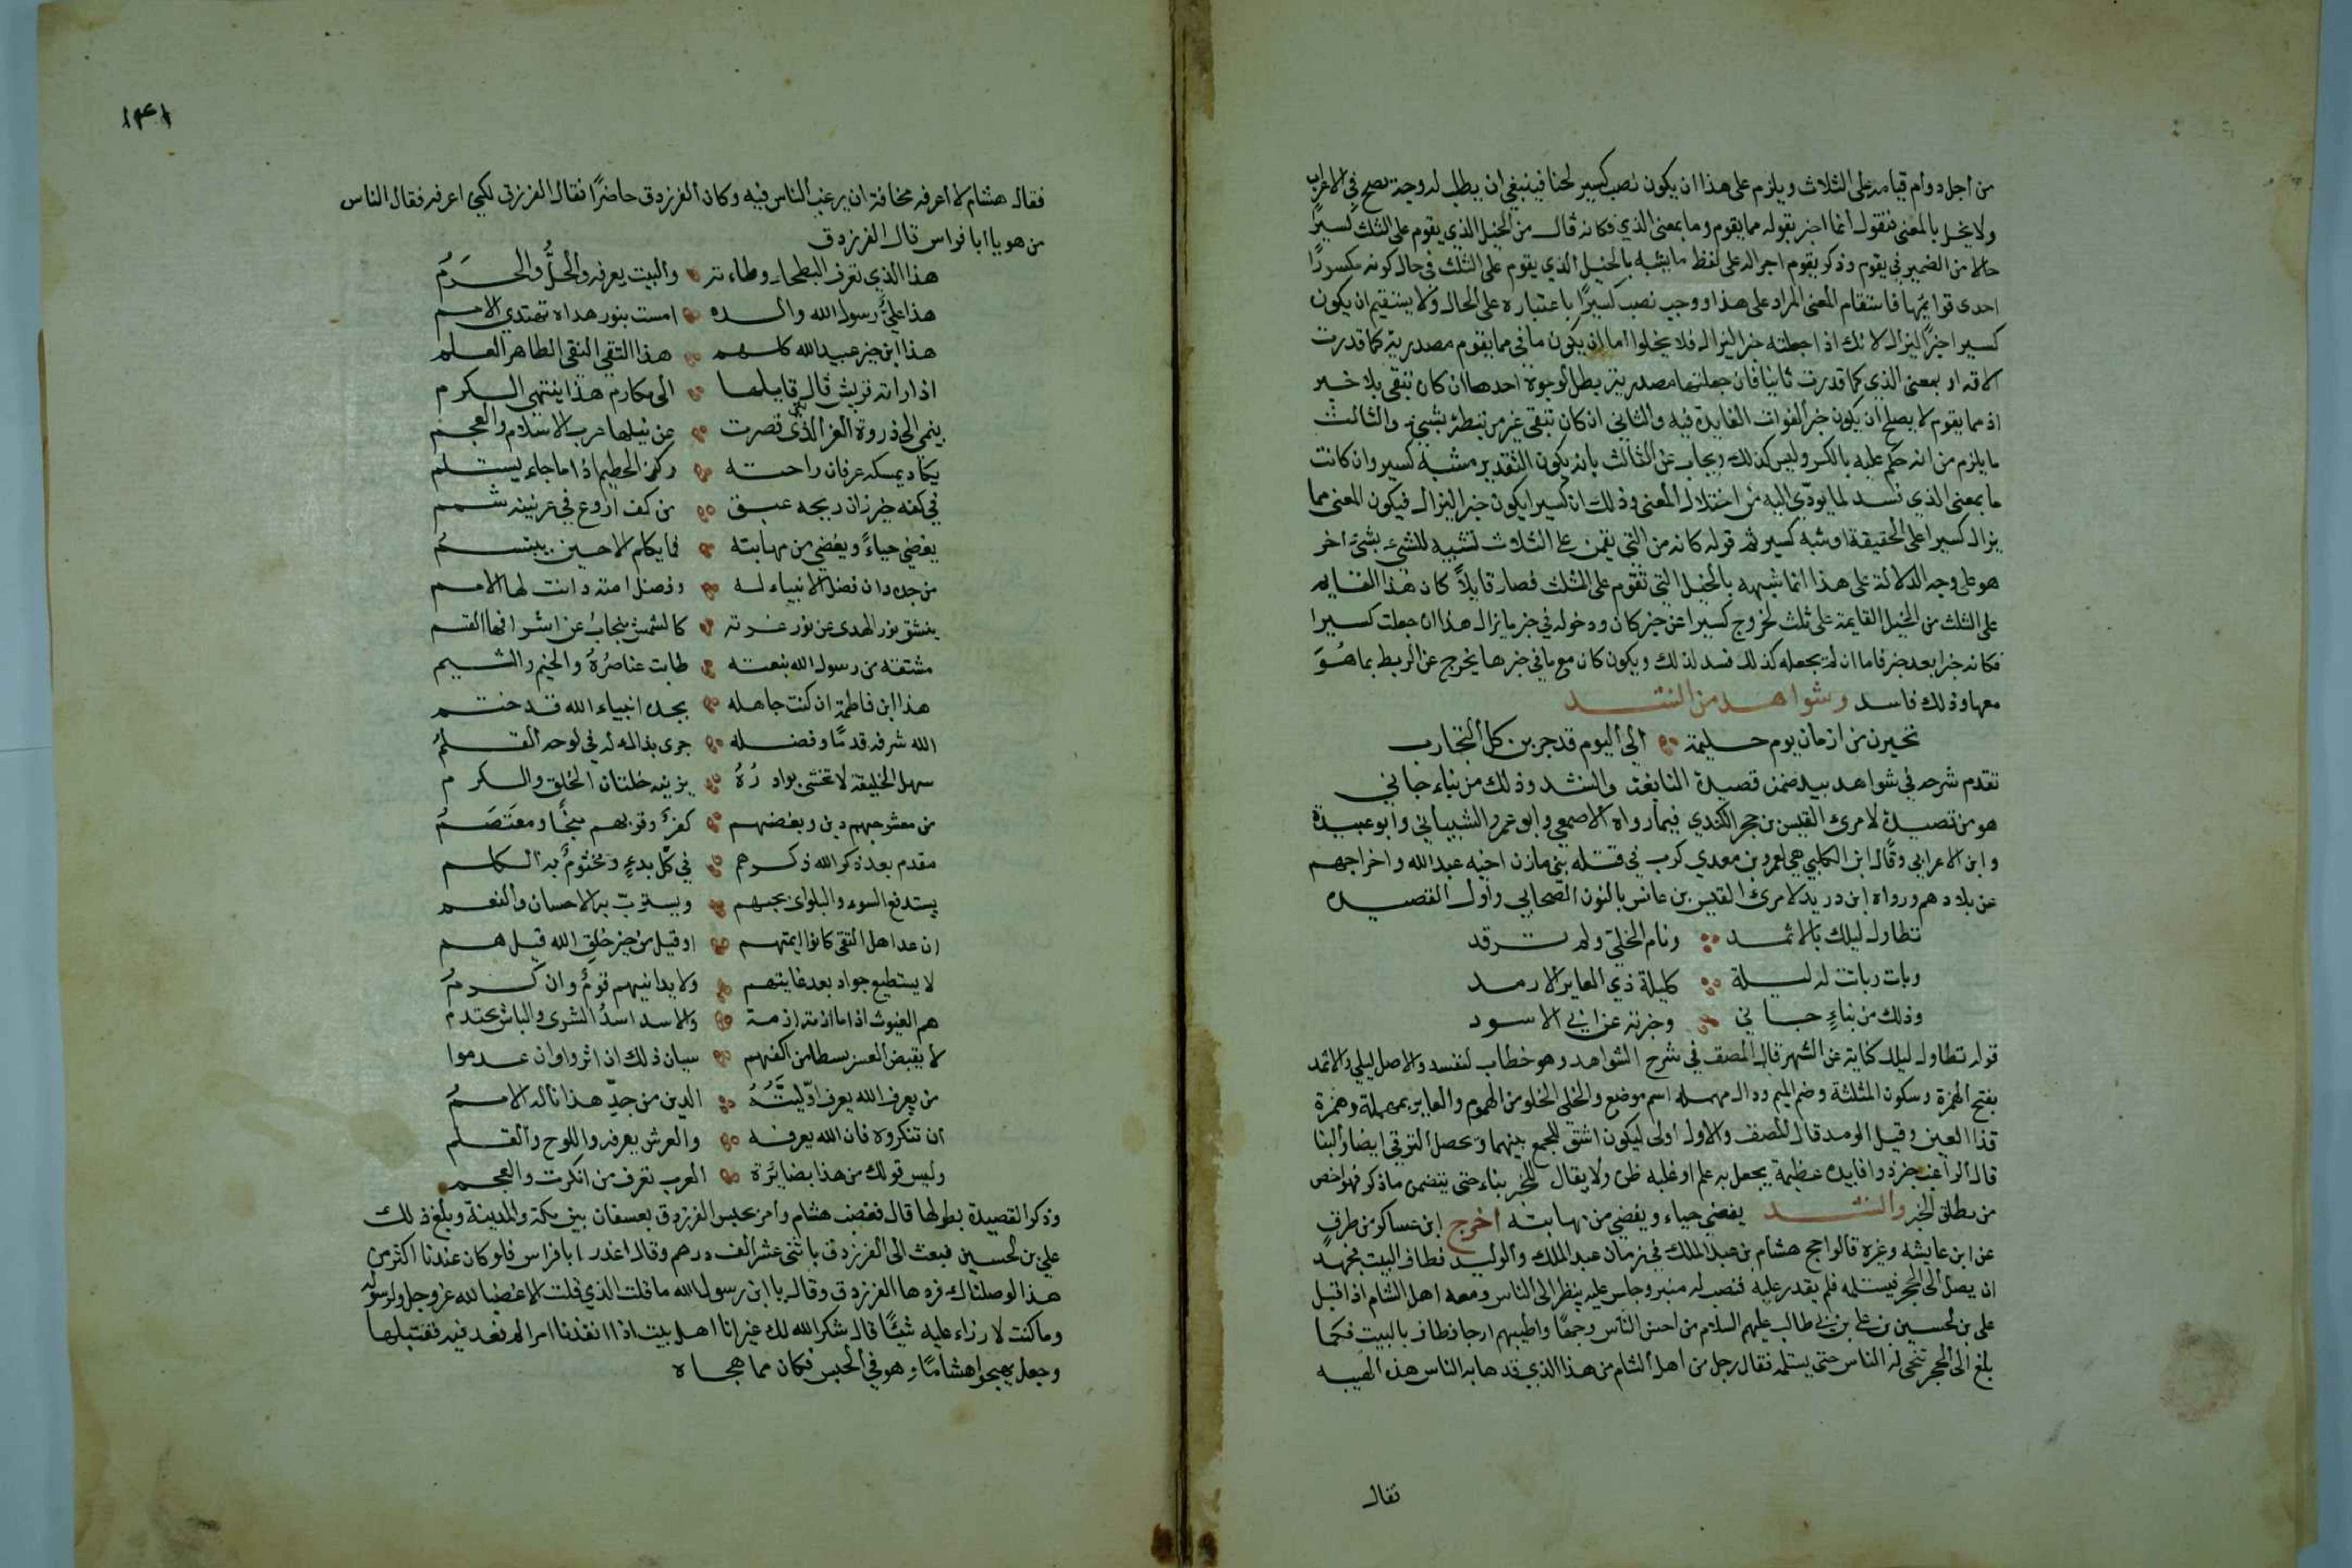 من أجل دوام قيامه على الثلاث ويلزم على هذا ان يكون نصب كسير لحنا فينبغي ان يطلب له وجه يصح في الاعراب
ولا يخل بالمعنى فنقول انما اخبر بقوله مما يقوم وما بمعنى الذي فكانه قال من الخيل الذي يقوم على الثلث كسيرًا
حالا من الضمير في يقوم وذكر يقوم اجراله على لفظ ما يشبه بالخيل الذي يقوم على الثلث في حال كونه مكسورًا
احدى قوايمها فاستقام المعنى المراد على هذا ووجب نصب كسيرًا باعتباره على الحال ولا يستقيم ان يكون
كسيرا خبرًا ليزال لانك اذا جعلته خبر ليزال فلا يخلوا اما ان يكون ما في مما يقوم مصدرية كما قدرت
الاقه او بمعنى الذي كما قدرت ثانيا فان جعلتها مصدرية بطل لوجوه احدها ان كان تبقى بلا خبر
اذ مما يقوم لا يصلح ان يكون خبرا لفوات الفايدة فيه والثاني ان كان تبقى غير مرتبطة بشيء والثالث
ما يلزم من انه حكم عليه بالكسر وليس كذلك ويجاب عن الثالث بانه يكون التقدير مشبه كسير وان كانت
ما بمعنى الذي فسد لما يودّى اليه من اختلال المعنى وذلك ان كسيرا يكون خبر ليزال فيكون المعنى مما
يزال كسيرا على الحقيقة او شبه كسير ثم قوله كانه من التي يقمن على الثلاث تشبيه للشيء بشيء اخر
هو على وجه الدلالة على هذا انما شبهه بالخيل التي تقوم على الثلث فصار قايلًا كان هذا القايم
على الثلث من الخيل القايمة على ثلث لخروج كسيرا عن خبر كان ودخوله في خبر ما يزال هذا ان جعلت كسيرا
فكانه خبرا بعد خبر فاما ان لم يجعله كذلك فسد لذلك ويكون كان مع ما في خبرها يخرج عن الربط بما هُوَ
معها وذلك فاسد وشواهد من انشد
تخيرن من ازمان يوم حليمة الى اليوم قد جربن كل التجارب
تقدم شرحه في شواهد بيد ضمن قصيدة النابغة وانشد وذلك من نباء جاني
هو من قصيدة لامرئ القيس بن حجر الكندي فيما رواه الاصمعي وابو عمرو الشيباني وابو عبيدة
وابن الاعرابي وقال ابن الكلبي هي لعمرو بن معدي كرب في قتله بني مازن اخيه عبد الله واخراجهم
عن بلادهم ورواه ابن دريد لامرئ القيس بن عانس بالنون الصحابي واول القصيده
تطاول ليلك بالاثمد ونام الخلي ولم ترقد
وبات وباتت له ليلة كليلة ذي العاير الارمد
وذلك من نباءٍ جاني وخبرته عن ابي الاسود
قوله تطاول ليلك كناية عن السهر قال المصنف في شرح الشواهد وهو خطاب لنفسه والاصل ليلي والاثمد
بفتح الهمزة وسكون المثلثة وضم الميم ودال مهمله اسم موضع والخلي الخلو من الهموم والعاير بمهملة وهمزة
قذا العين وقيل الرمد قال المصنف والاول أولى ليكون اشق للجمع بينهما وتحصل الترقي ايضا والنبا
قال الراغب خبر ذو افايده عظيمة يحصل به علم او غلبه ظن ولا يقال للخبر نباء حتى يتضمن ما ذكر فهو اخص
من مطلق الخبر وانشد يغضي حياء ويغضي من مهابته اخرج ابن عساكر من طرقٍ
عن ابن عايشه وغيره قالوا حج هشام بن عبد الملك في زمان عبد الملك والوليد فطاف بالبيت فجهد
ان يصل الى الحجر فيستلمه فلم يقدر عليه فنصب له منبر وجلس عليه ينظر الى الناس ومعه اهل الشام اذ اقبل
علي بن الحسين بن علي بن ابي طالب عليهم السلام من احسن الناس وجهًا واطيبهم ارجا فطاف بالبيت فكما
بلغ الى الحجر تنحى له الناس حتى يستلمه فقال رجل من اهل الشام من هذا الذي قد هابه الناس هذه الهيبه
فقال
١٣٤١
فقال هشام لا أعرفه مخافة ان يرغب الناس فيه وكان الفرزدق حاضرًا فقال الفرزدق لكني اعرفه فقال الناس
من هو يا ابا فراس قال الفرزدق
هذا الذي تعرف البطحاء وطاءته والبيت يعرفه والحلُّ والحَرَمُ
هذا عليٌّ رسول الله والده امست بنور هداه تهتدي الامم
هذا ابن خير عبيد الله كلهم هذا التقي النقي الطاهر العلم
اذا راته قريش قال قايلها الى مكارم هذا ينتهي الكرم
ينمى الى ذروة العز الذي قصرت عن نيلها عرب الاسلام والعجم
يكاد يمسكه عرفان راحته ركن الحطيم اذا ما جاء يستلم
في كفه خيزران ريحه عبق من كف اروع في عرنينه شمم
يغضي حياءً ويغضي من مهابته فما يكلم الا حين يبتسمُ
من جده دان فضل الانبياء له وفضل امته دانت لها الامم
ينشق نور الهدى عن نور غرته كالشمس ينجابُ عن اشراقها القتم
مشتقة من رسول الله نبعته طابت عناصرُهُ والخيم والشيم
هذا ابن فاطمة ان كنت جاهله بجده انبياء الله قد ختم
الله شرفه قدمًا وفضله جرى بذاك له في لوحه القلمُ
سهل الخليقة لا تخشى بوادرُهُ يزينه خلتان الخلق والكرم
من معشر حبهم دين وبغضهم كفرٌ وقربهم منجًا ومعتَصَمُ
مقدم بعد ذكر الله ذكرهم في كل بدءٍ ومختومٌ به الكلم
يستدفع السوء والبلوى بحبهم ويستربّ به الاحسان والنعم
ان عد اهل التقى كانوا ايمتهم او قيل من خير خلق الله قيل هم
لا يستطيع جواد بعد غايتهم ولا يدانيهم قومٌ وان كرمُ
هم الغيوث اذا ما ازمة ازمة والاسد اسدُ الشرى والباس محتدم
لا يقبض العسر بسطا من اكفهم سيان ذلك ان اثروا وان عدموا
من يعرف الله يعرف اوّليّتَهُ الدين من جدِّ هذا ناله الاممُ
ان تنكروه فان الله يعرفه والعرش يعرفه واللوح والقلم
وليس قولك من هذا بضايَرة العرب تعرف من انكرت والعجم
وذكر القصيدة بطولها قال فغضب هشام وأمر بحبس الفرزدق بعسفان بين مكة والمدينة وبلغ ذلك
علي بن الحسين فبعث الى الفرزدق باثنى عشر الف درهم وقال اعذر ابا فراس فلو كان عندنا اكثر من
هذا لوصلناك فردها الفرزدق وقال يا ابن رسول الله ما قلت الذي قلت الا غضبا لله عز وجل ولرسوله
وما كنت لارزاء عليه شيئًا قال شكر الله لك غير انا اهل بيت اذا انفذنا امرا لم نعد فيه فقبلها
وجعل يهجوا هشامًا وهو في الحبس فكان مما هجاه